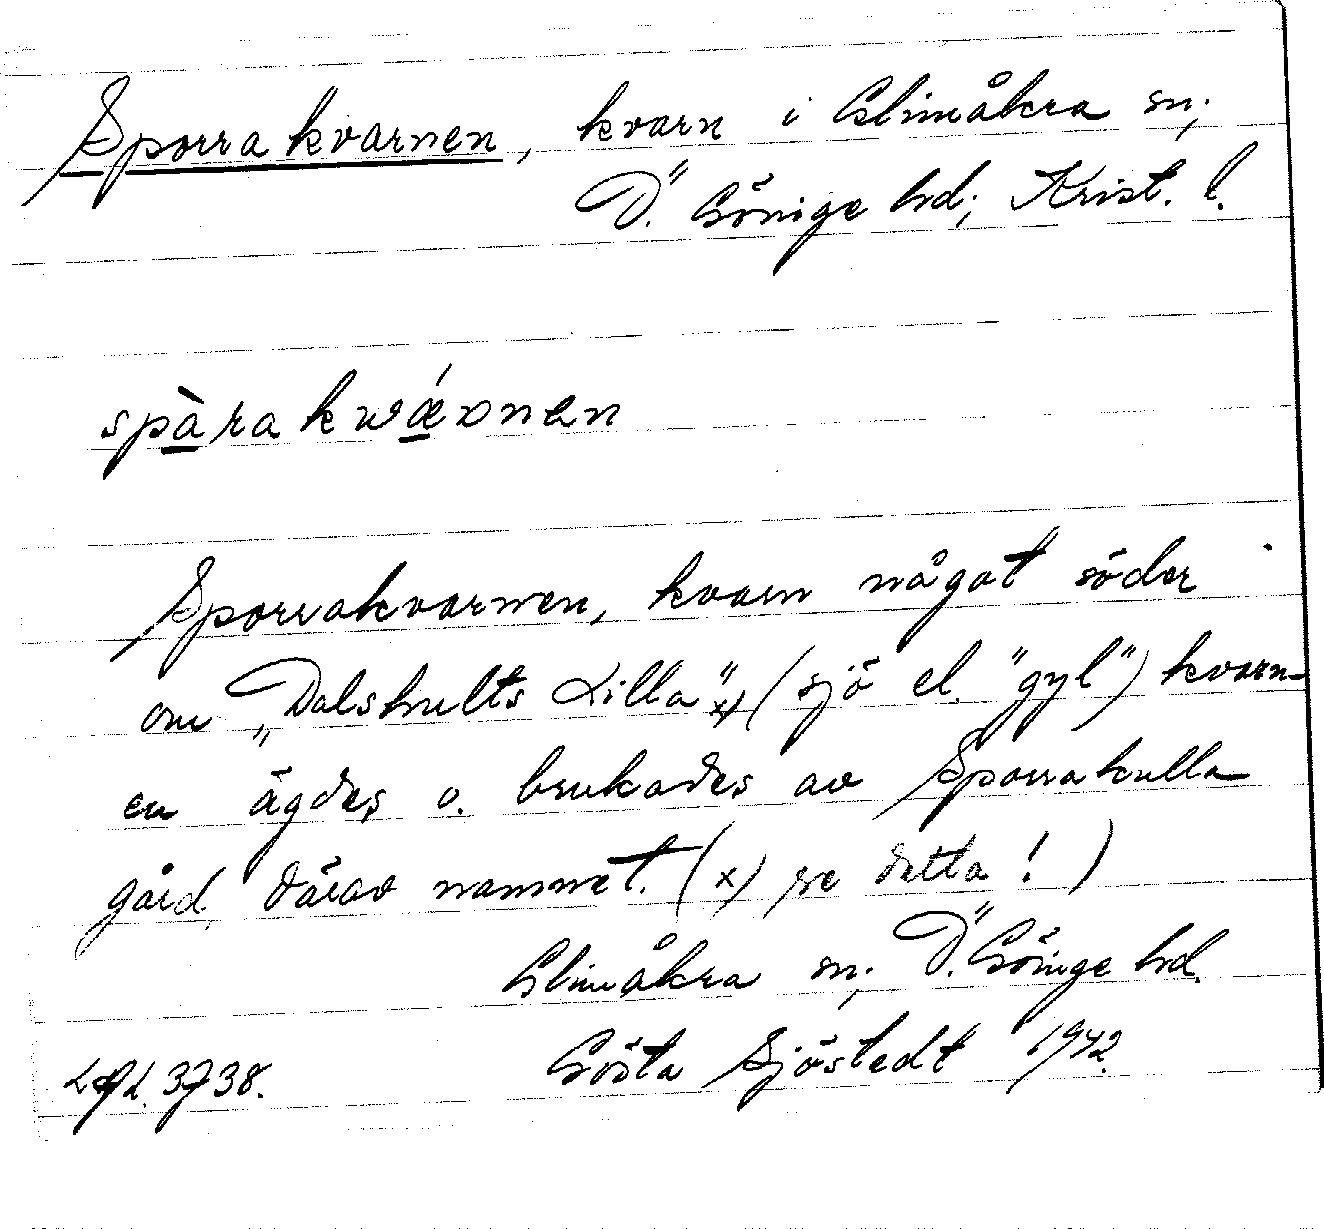 Sporrakvarnen, kvarn i Glimåkra sn;
Ö. Göinge hd; Krist. l.
spàrakwǽvnen
Sporrakvarnen, kvarn något söder
om „Dalshults Lilla" x) (sjö el. "gyl") kvarn-
en ägdes o. brukades av Sporrakulla
gård, därav namnet. (x) se detta! )
Glimåkra sn; Ö. Göinge hd.
Gösta Sjöstedt 1942.
3738.